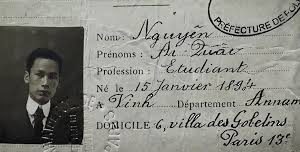 PRÉFECTURE DE
Nom: Nguyễn
Prénoms: Ai Quâc
Profession: Etudiant
Né le 15 Janvier 1894
a Vinh Département Annam
DOMICILE 6, villa des Gobelins
Paris 13e